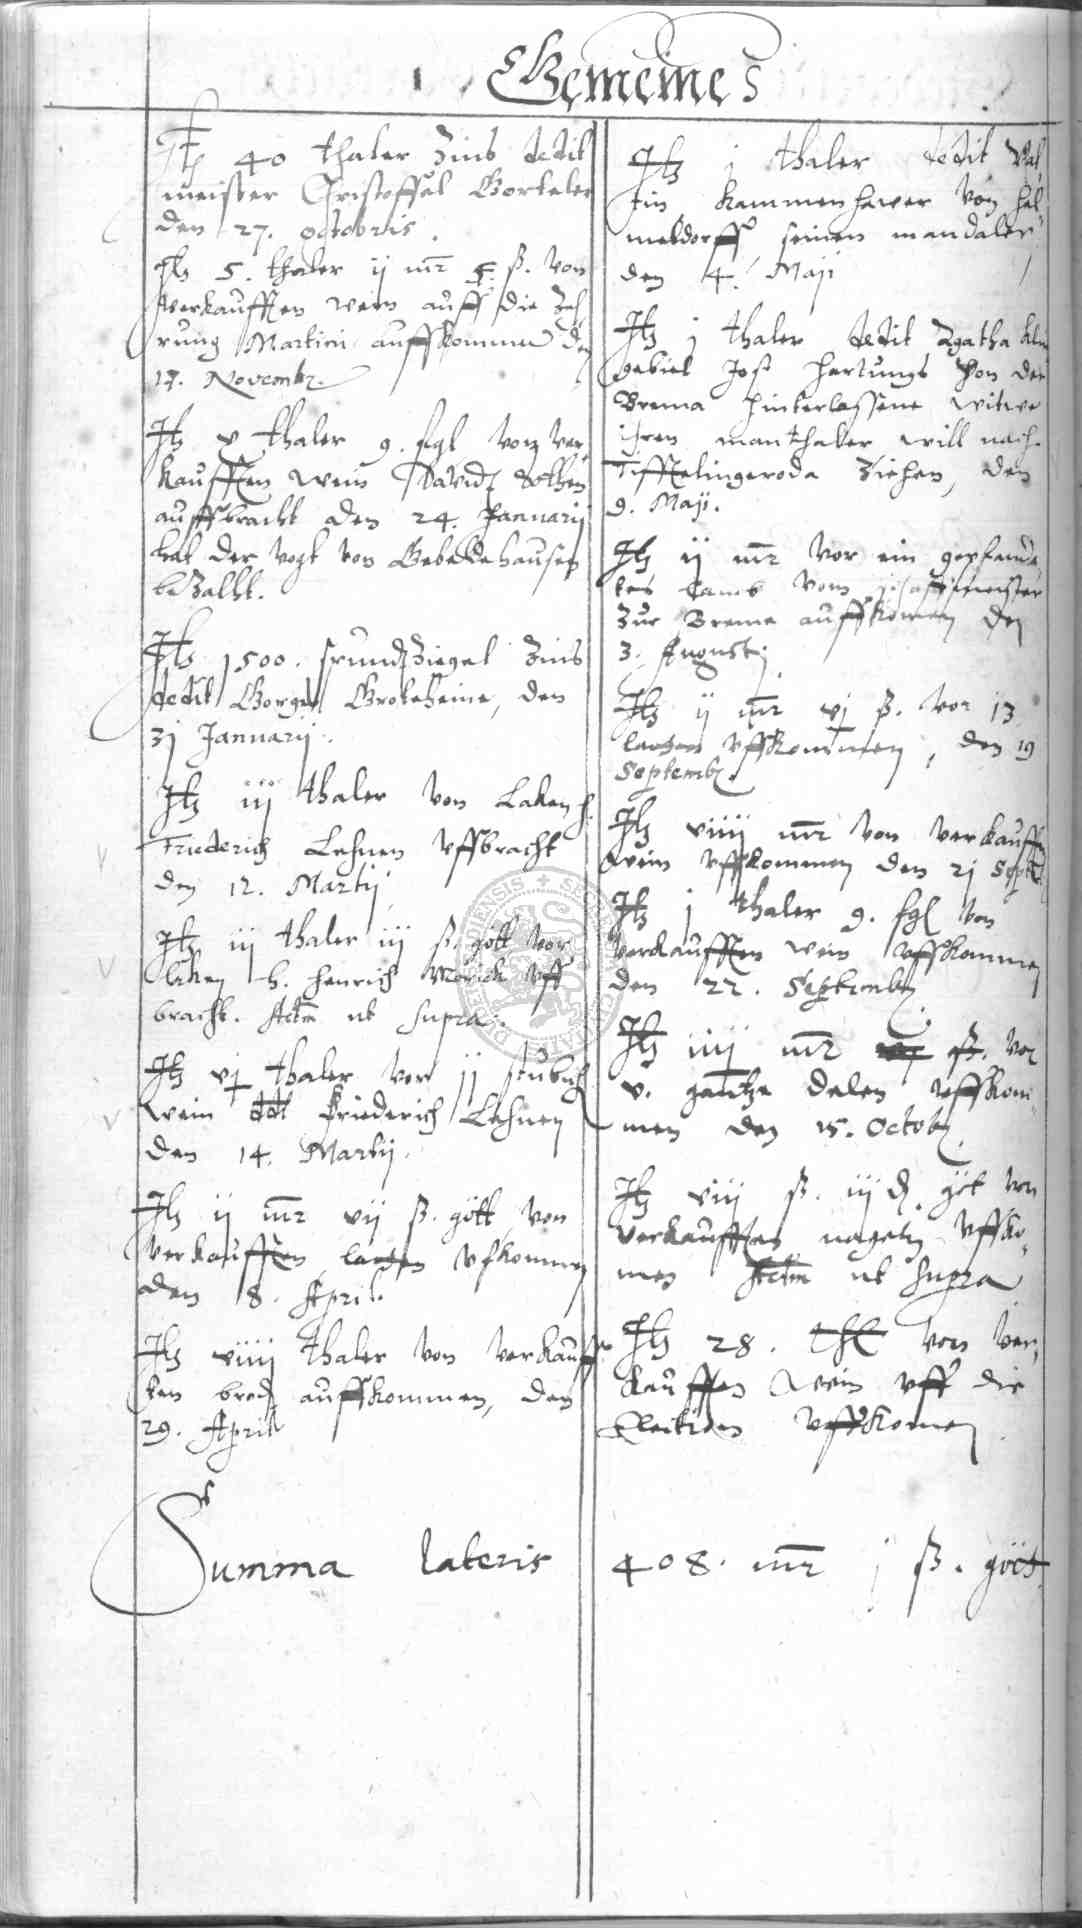 Gemeines
Itz 40 thaler Zins dedit
meister Christoffel Borkeler
den 27. octobris.
Itz 5. thaler ij mr 5 ß. von
verkaufften wein auff die Zeh
rung Martini auffkommen den
17. Novembr.
Itz v thaler 9. sgl vonn ver
kaufften wein David Bothen
auffbracht den 24. Januarij
hat der vogt von Gebeldehausen
bezallt.
Itz 1500. Ziegel Zins
dedit Borges Groteheine, den
31 Januarij.
Itz iij thaler von Laken h.
Friederich Lehnen uffbracht
den 12. Martij
Itz iij thaler iij ß. gött vor
laken h. Henrich uff
bracht. Actm ut supra.
Itz vj thaler vor ij stübich
wein ddt Friederich Lehnen
den 14. Martij.
Itz ij mr vij ß. gött von
verkaufften latzen ufkommen
den 8. April.
Itz viiij thaler von verkauff
ten brod auffkommen, den
29. April
Itz j thaler dedit Val
tin Kammenhawer von Hel
meldorff seinen mandaler
den 4. Maji
Itz j thaler dedit Agatha
Jost Hartungs von der
Brema hinterlassene witwe
ihren manthaler will nach
Tifftelingeroda Ziehen, den
9. Maji.
Itz ij mr vor ein gepfande
tes Lamb vom schaffmeister
Zur Breme auffkomen den
3. Augustj
Itz ij mr vj ß. vor 13
latzen uffkommen, den 19
Septembr.
Itz viiij mr von verkaufften
wein uffkommen den 21 Septb.
Itz j thaler 9. sgl von
verkaufften wein uffkommen
den 22. Septembr
Itz iiij mr ß. vor
v. gantze delen uffkom
men den 15. Octobr.
Itz viij ß. iij d gött von
verkaufften nageln uffko
men Actm ut supra
Itz 28. thl von ver
kaufften wein uff die
Election uffkomen
Summa lateris 408. mr j ß. gött.